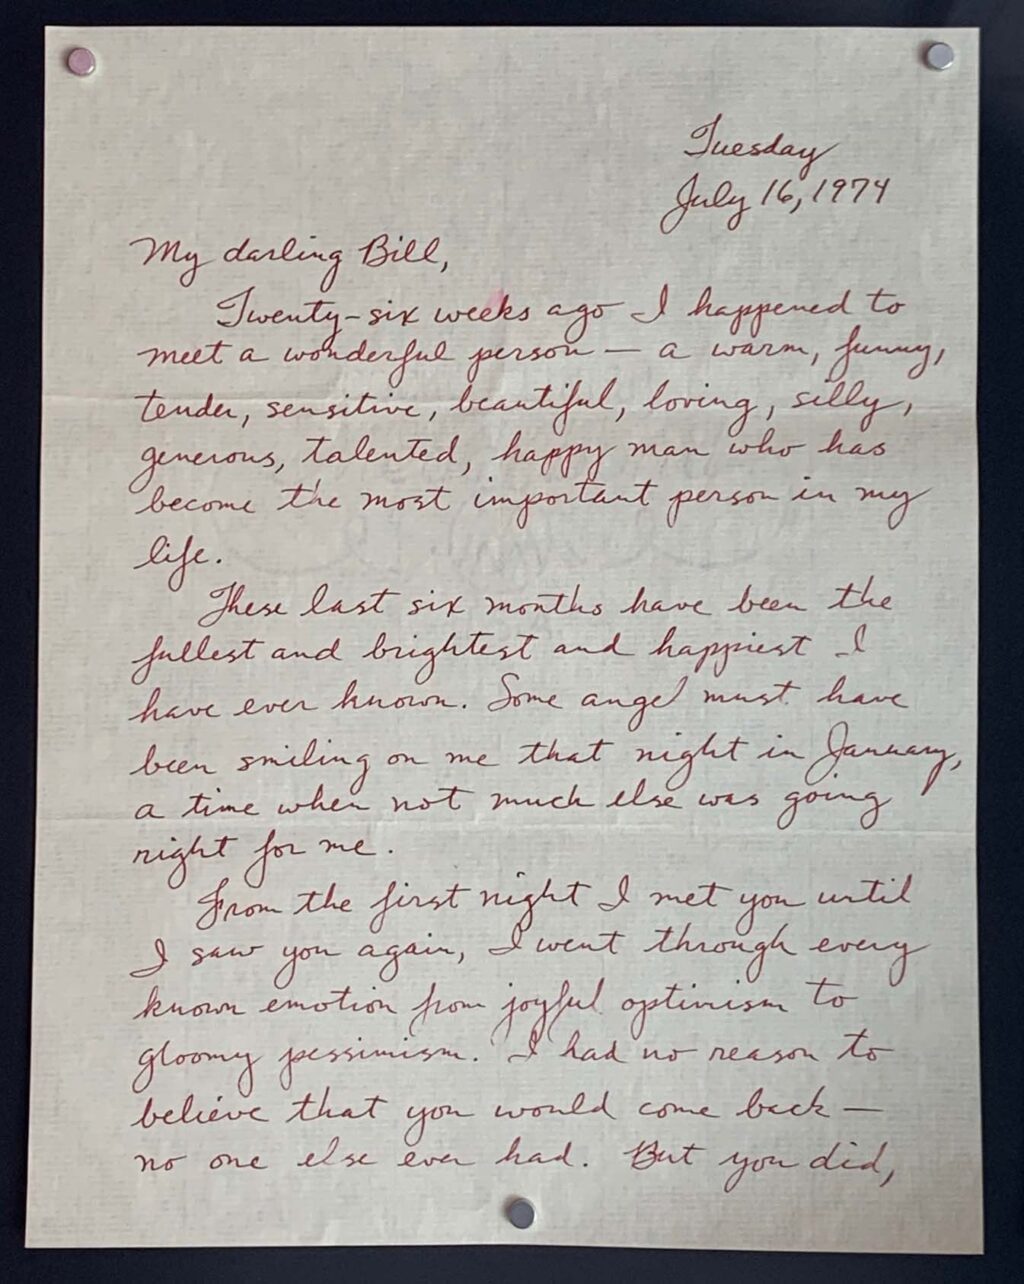 Tuesday
July 16, 1974
My darling Bill,
Twenty-six weeks ago I happened to
meet a wonderful person — a warm, funny,
tender, sensitive, beautiful, loving, silly,
generous, talented, happy man who has
become the most important person in my
life.
These last six months have been the
fullest and brightest and happiest I
have ever known. Some angel must have
been smiling on me that night in January,
a time when not much else was going
right for me.
From the first night I met you until
I saw you again, I went through every
known emotion from joyful optimism to
gloomy pessimism. I had no reason to
believe that you would come back —
no one else ever had. But you did,